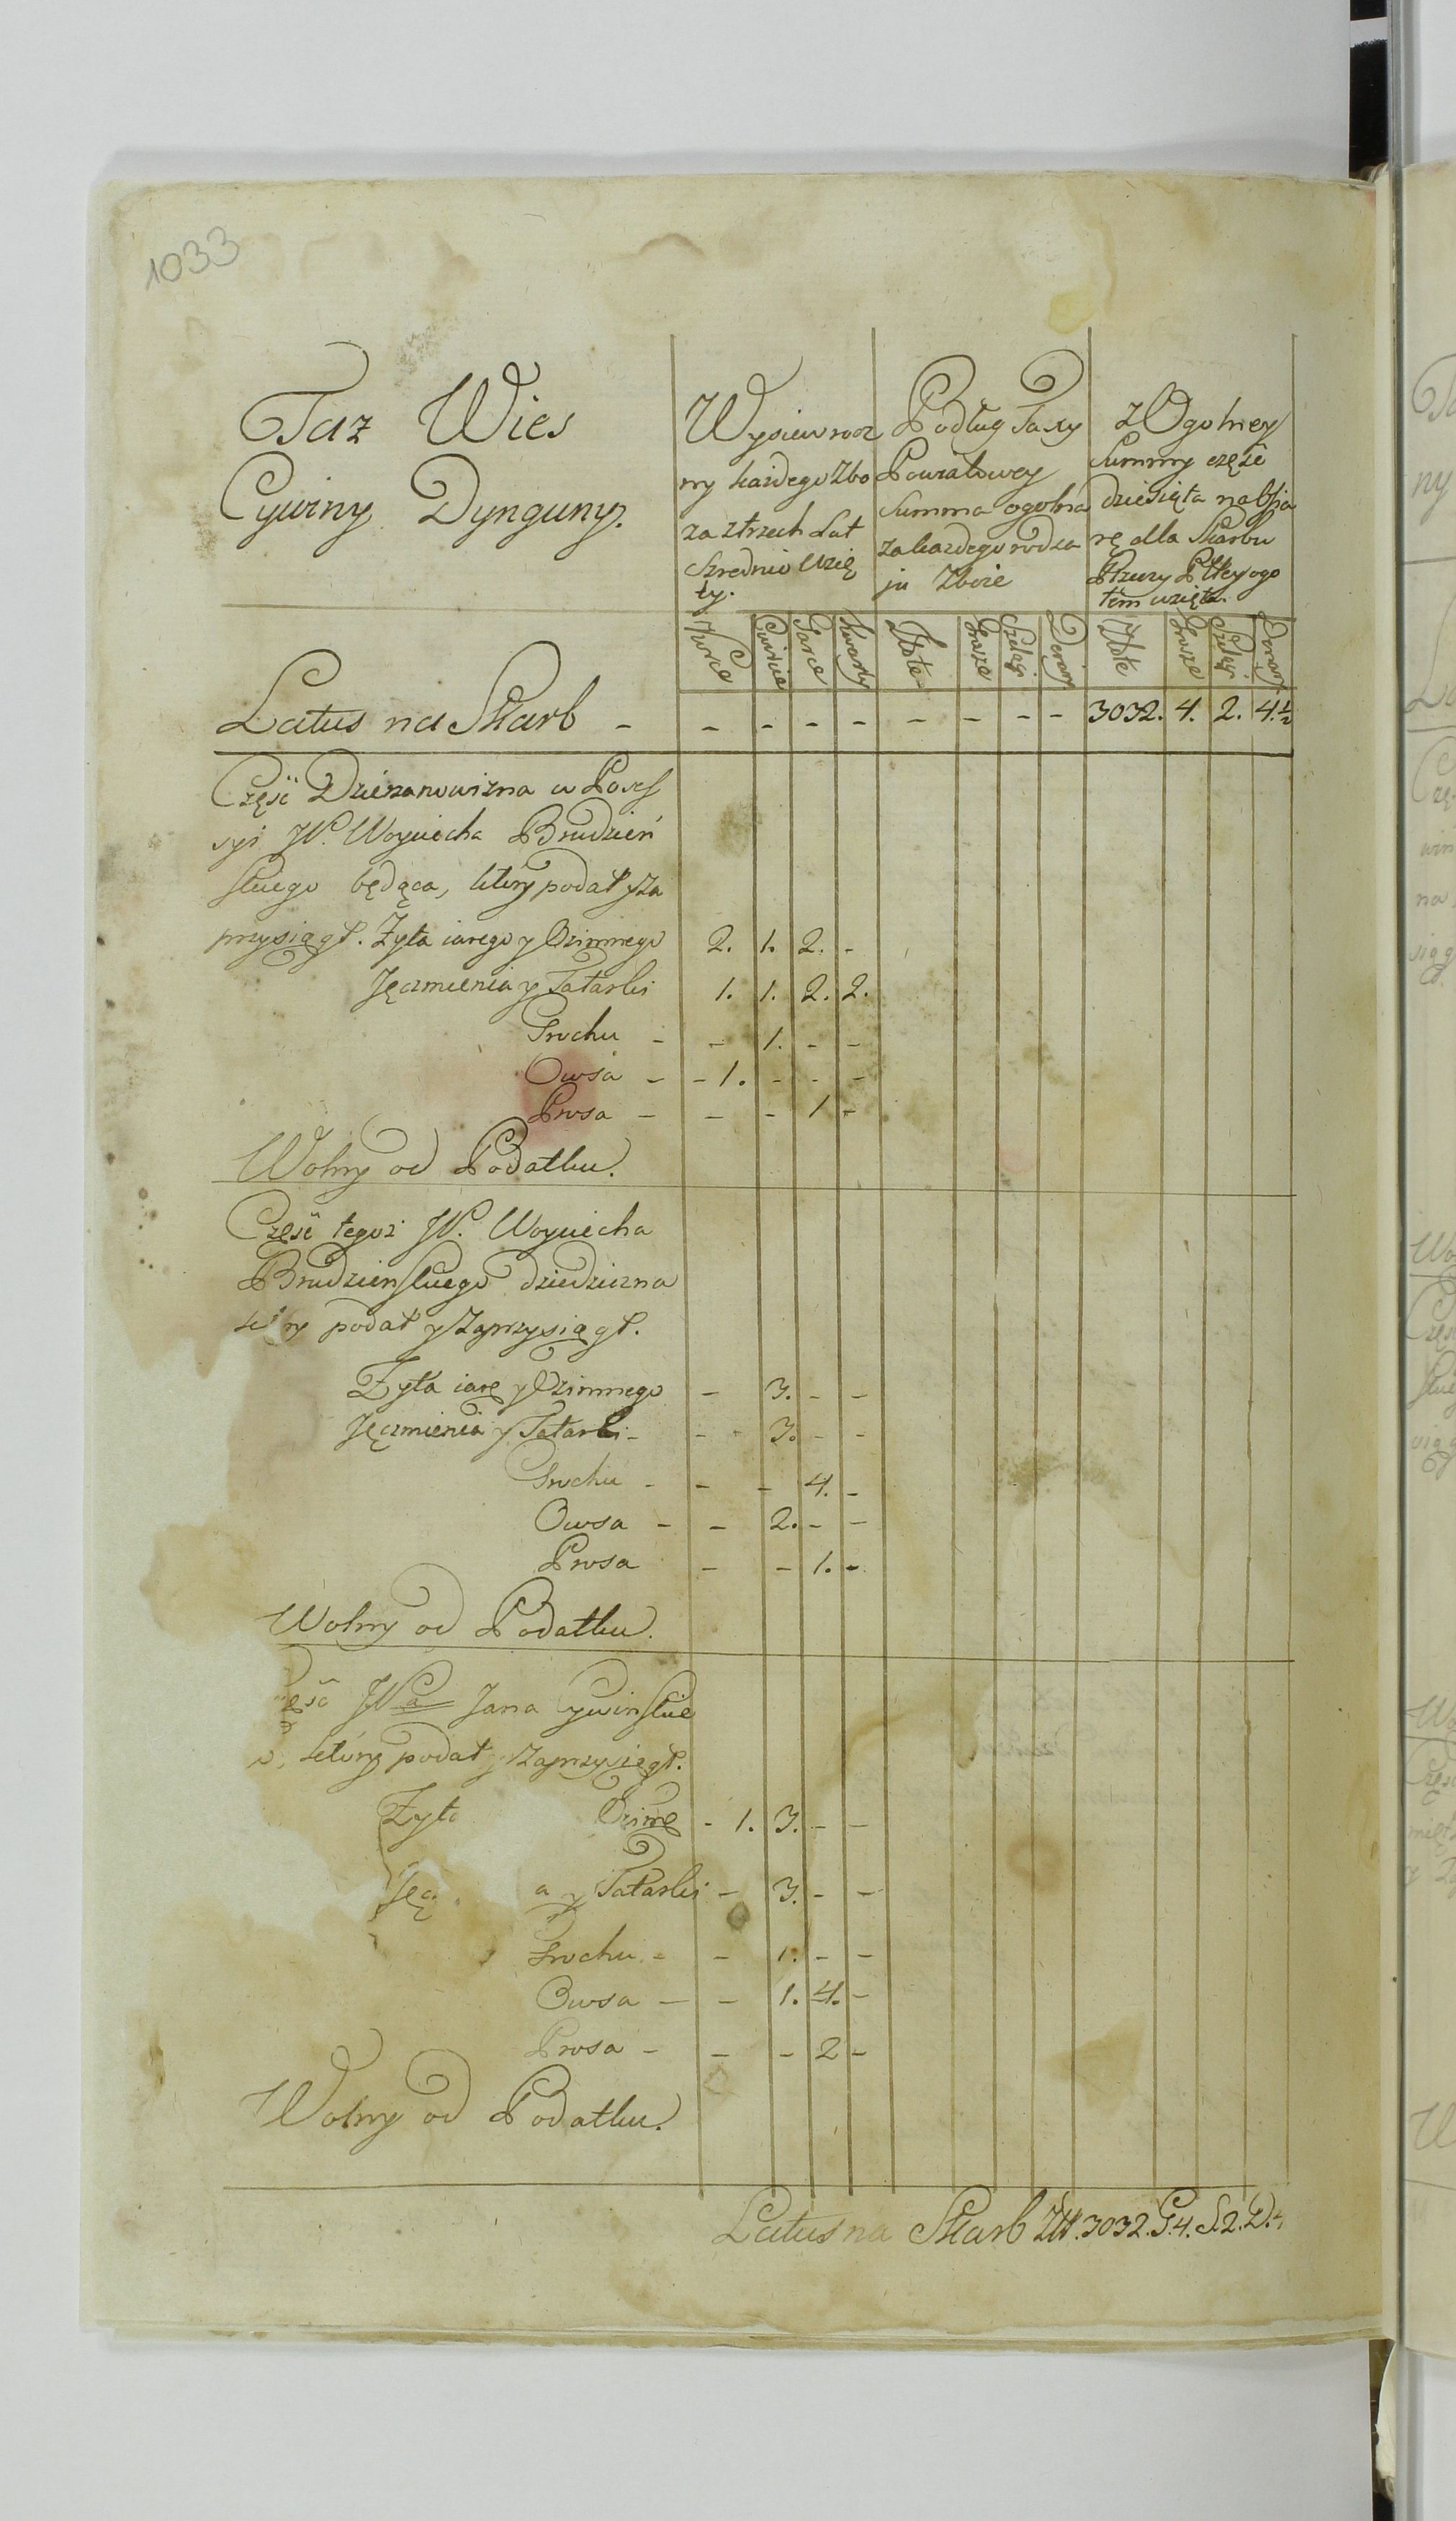 1033
Taz Wies
Cywiny Dynguny.
Wysiew rocz
ny każdego Zbo
za z trzech Lat
Szrednio wzię
ty.
Podług Taxy
Powiatowey
Summa ogolna
za każdego rodza
ju Zboże
z Ogolney
Summy częsć
dziesiąta na Ofia
rę dla Skarbu
Rzeczy Pltey ogo
łem wzięta.
Korce Cwiercie Garce Kwarty Złote Grosze Szelągi Denary Złote Grosze Szelągi Denary
Latus na Skarb - - - - - - - - - 3032. 4. 2. 4.½
Częsć Dzierzanowizna w Posses
syi JP. Woyciecha Brudzień
skiego będąca, ktory podał y za
przysiągł. Zyta iarego y Ozimnego 2. 1. 2. -
Jęczmienia y Tatarki 1. 1. 2. 2.
Grochu - - 1. - -
Owsa - - 1. - - -
Prosa - - - 1 -
Wolny od Podatku.
Częsć tegoz JP. Woyciecha
Brudzienskiego dziedziczna
któ ry podał y Zaprzysiągł.
Zyta iare y Ozimnego - 3. - -
Jęczmienia y Tatarki - - - 3. - -
Grochu - - - 4. -
Owsa - - 2. - -
Prosa - - 1. -
Wolny od Podatku.
ęsć JPa Jana Cywinskie
o, który podał y Zaprzysiągł.
Zyta Ozime - 1. 3. - -
Ję a y Tatarki - 3. - -
Grochu - - 1. - -
Owsa - - 1. 4. -
Prosa - - - 2 -
Wolny od Podatku.
Latus na Skarb Złł. 3032. G. 4. S. 2. D. 4